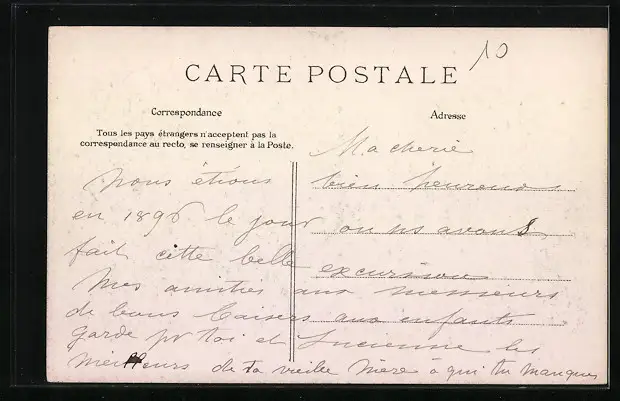 10
CARTE POSTALE
Correspondance
Adresse
Tous les pays étrangers n'acceptent pas la
correspondance au recto, se renseigner à la Poste.
Ma cherie
nous étions bien heureux
en 1896 le jour ou ns avons
fait cette belle excursion
Mes amitiés aux messieurs
de bons baisers aux enfants
garde pr toi et Lucienne les
meilleurs de ta vieille Mère à qui tu manques